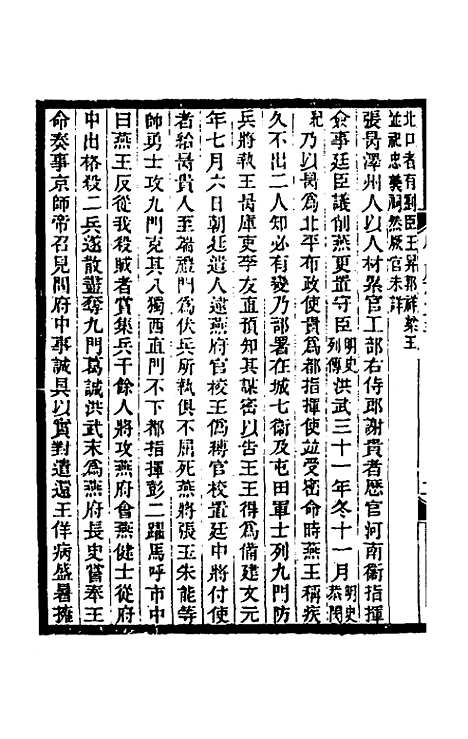 北口者有劉臣王昇郭祥等王
並祀忠義祠然厥官未詳
張昺澤州人以人材累官工部右侍郎謝貴者歷官河南衛指揮
僉事廷臣議削燕更置守臣明史列傳洪武三十一年冬十一月明史恭閔
紀乃以昺爲北平布政使貴爲都指揮使並受密命時燕王稱疾
久不出二人知必有變乃部署在城七衛及屯田軍士列九門防
兵將執王昺庫吏李友直預知其謀密以告王王得爲備建文元
年七月六日朝廷遣人逮燕府官校王僞縛官校置廷中將付使
者給昺貴人至端禮門爲伏兵所執俱不屈死燕將張玉朱能等
師勇士攻九門克其八獨西直門不下都指揮彭二躍馬呼市中
曰燕王反從我殺賊者賞集兵千餘人將攻燕府會燕健士從府
中出格殺二兵遂散盡奪九門葛誠洪武末爲燕府長史嘗奉王
命奏事京師帝召見問府中事誠具以實對遣還王佯病盛暑擁